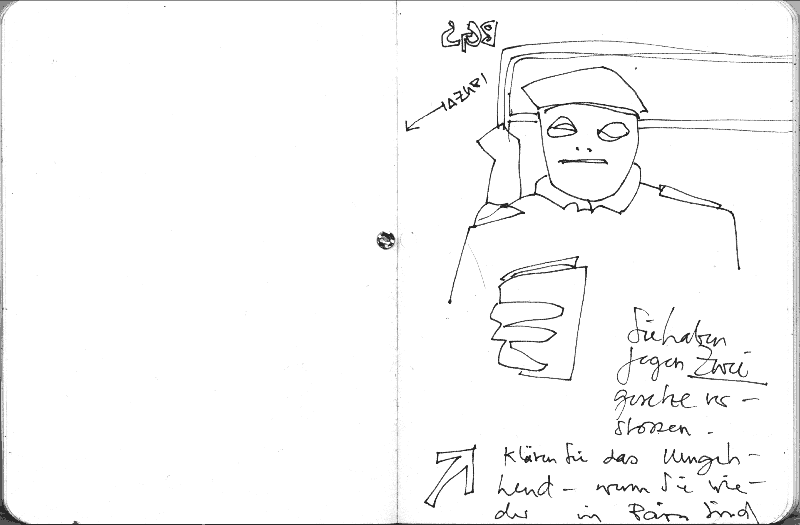 Sie haben
gegen Zwei
gesetze ver-
stossen.
Klären Sie das Umgeh-
hend - wenn Sie wie-
der in Paris sind